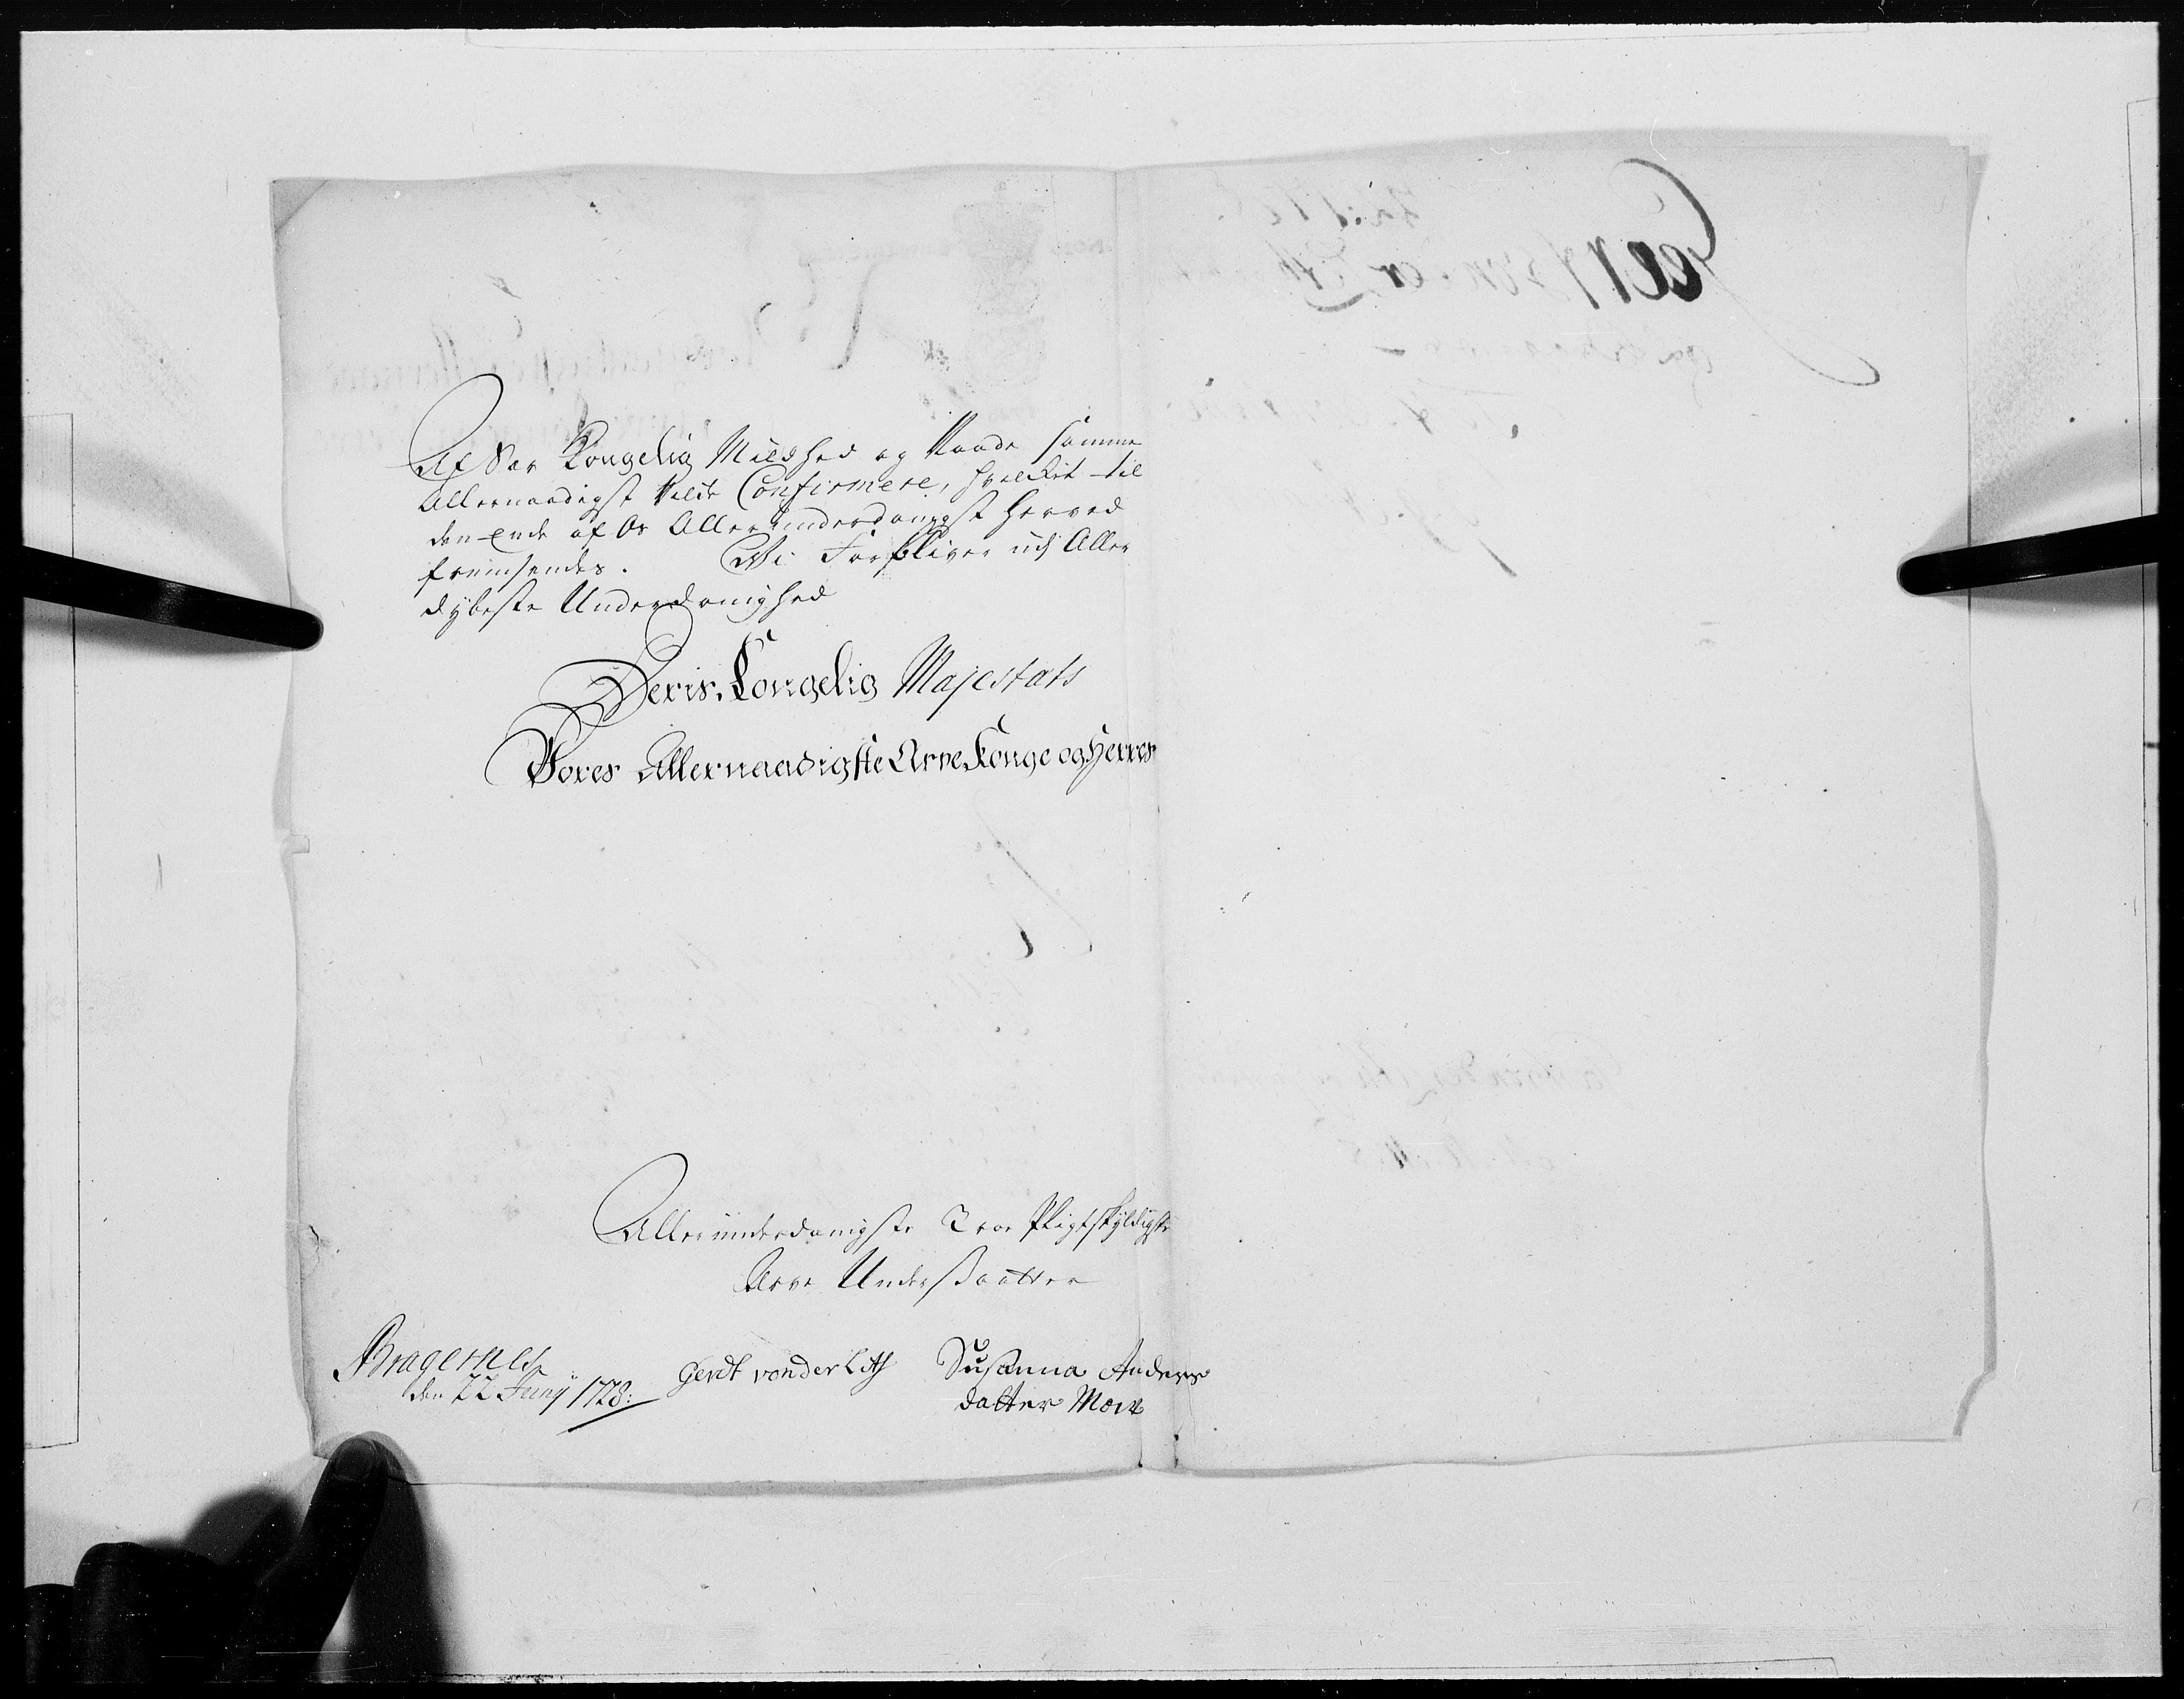 Af Sær Kongelig Mildhed og Naade samme
Allernaadigst Vilde Confirmere, hvelchet til
den Ende af Os Allerunderdanigst herved
fremsendes. Wi Forbliver udj Aller
dybeste Underdanighed
Deris Kongelig Majestæts
Vores Allernaadigste Arve Konge og Herres
Allerunderdanigste Troe Pligtskyldigste
Arve Undersaatter
Bragernes
den 22 Junij 1728:
Gerdt von der Lith
Susanna Anders
datter Moer